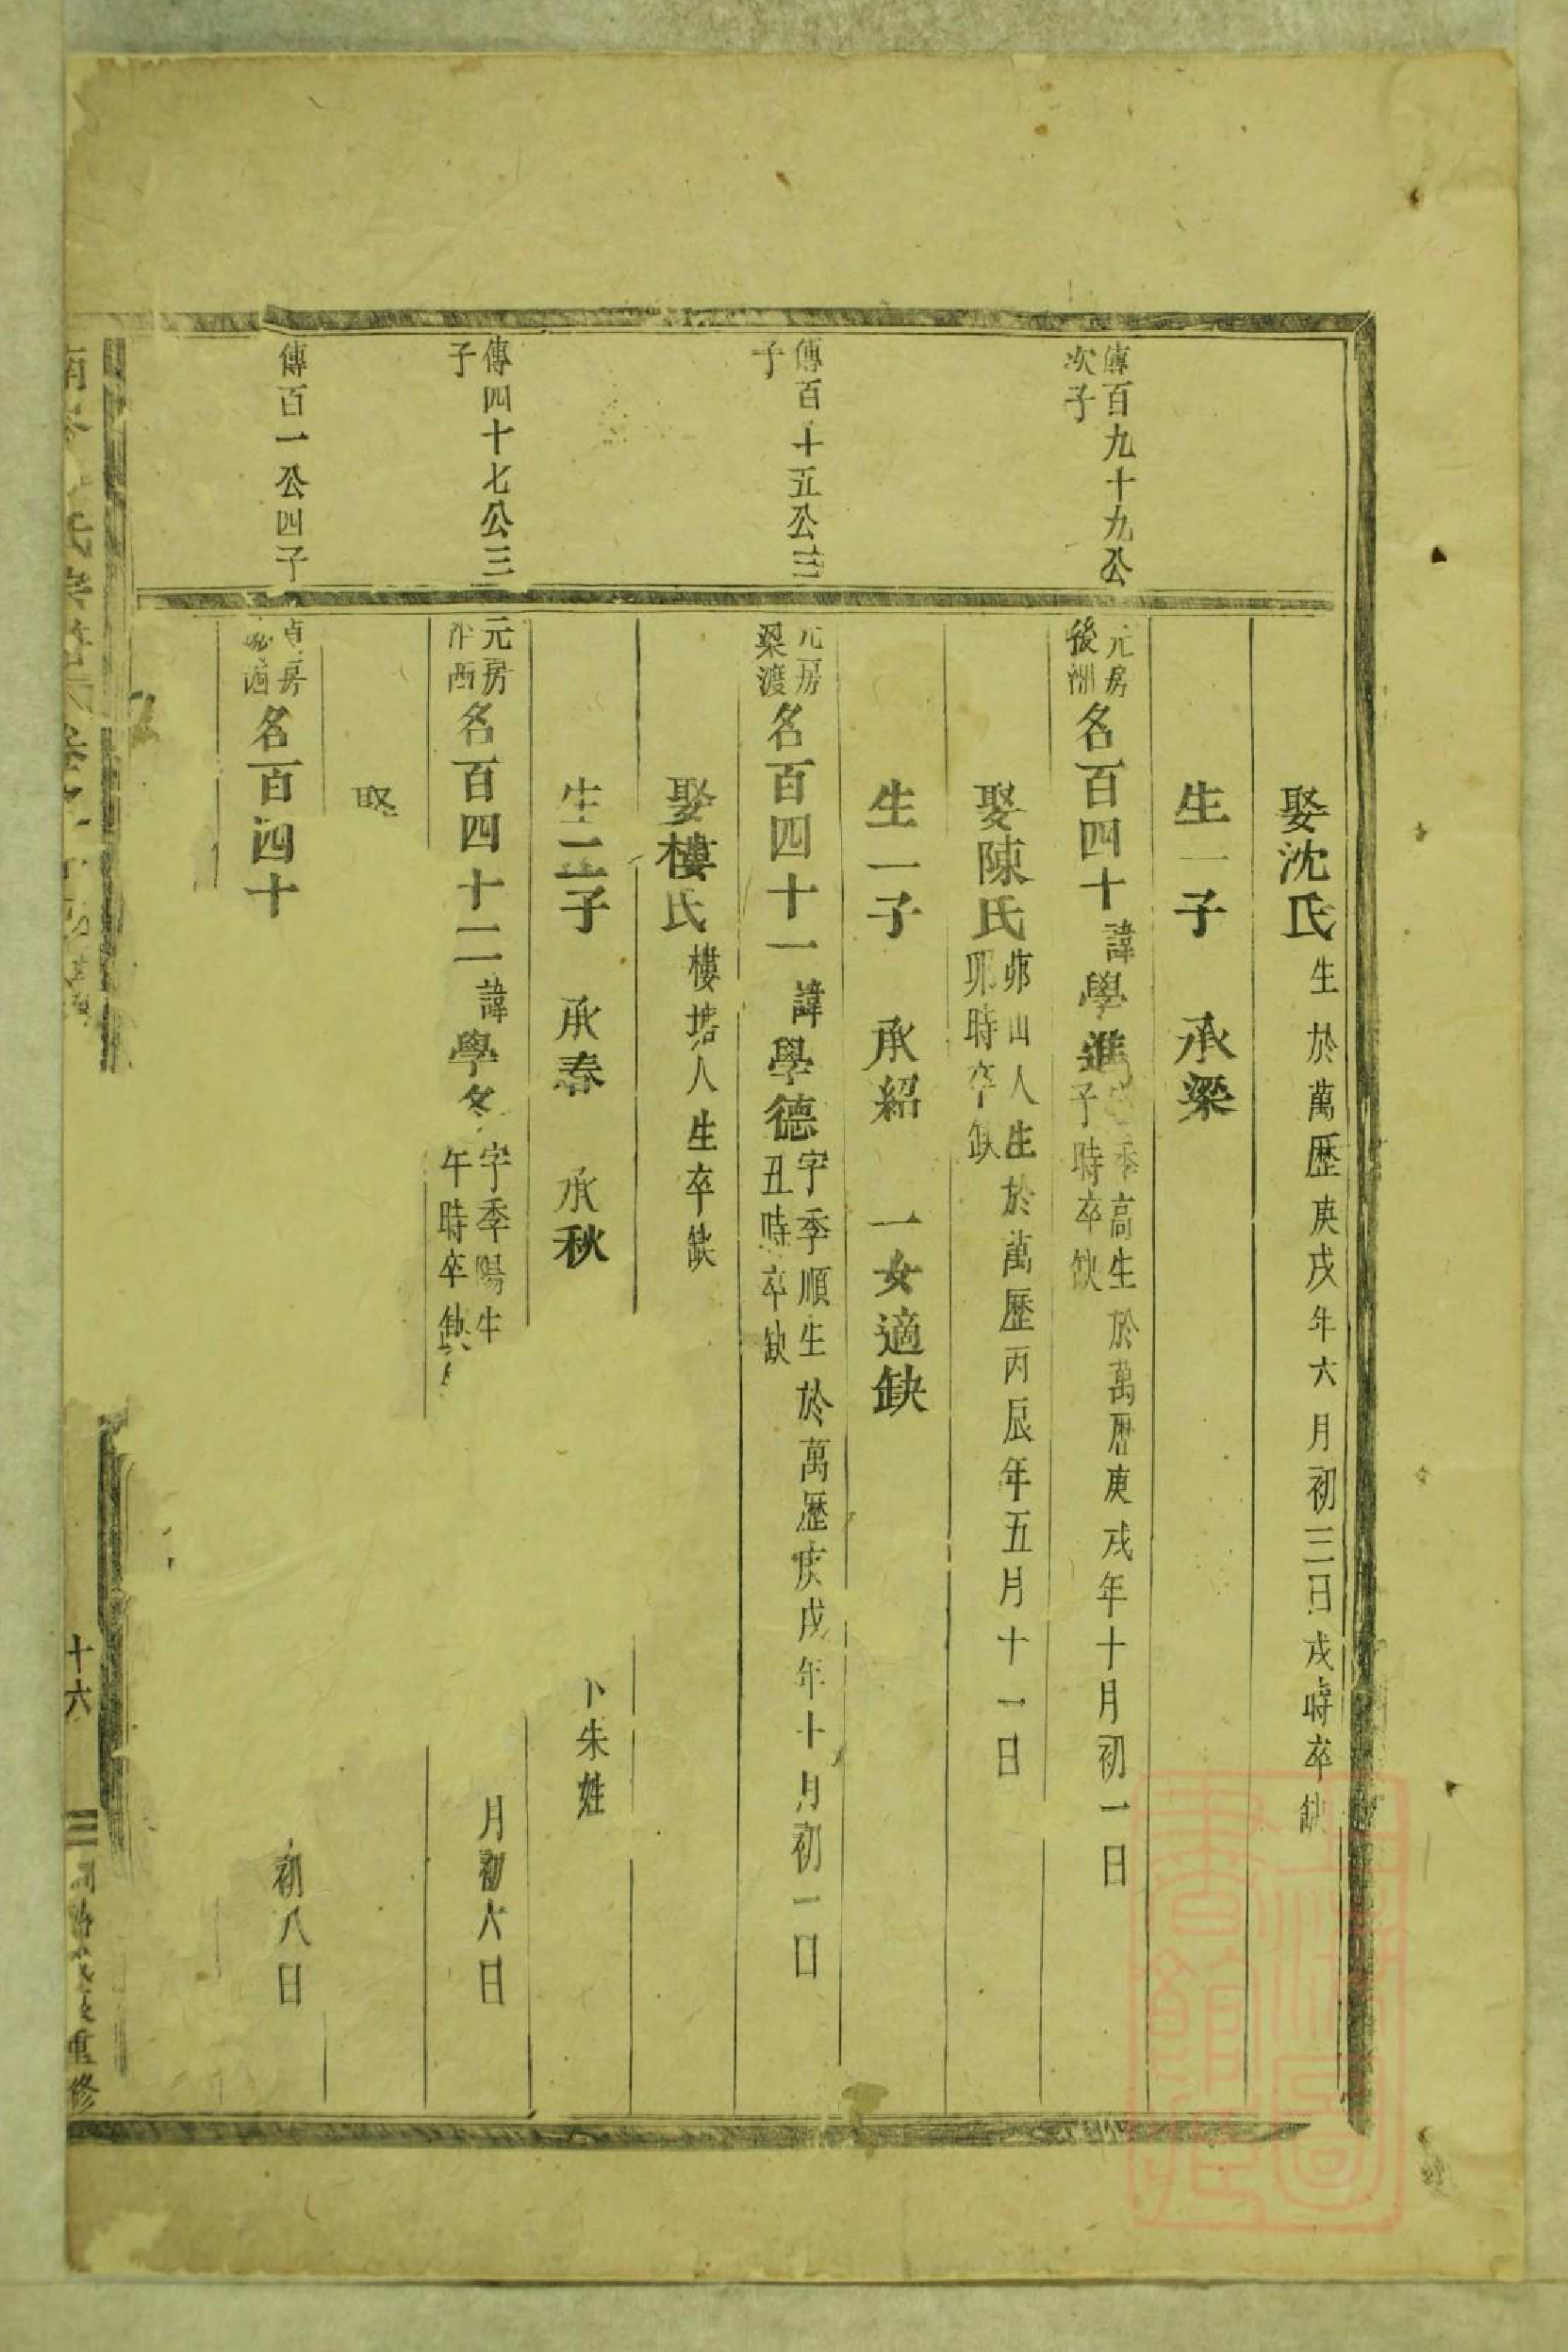 娶沈氏生於萬歷庚戌年六月初三日戌時卒缺
生一子　承梁
傳百九十九公
次子
元房
後洲
名百四十諱學進字季高生於萬歷庚戌年十月初一日
子時卒缺
娶陳氏茆山人生於萬歷丙辰年五月十一日
卯時卒缺
生一子　承紹　一女適缺
傳百十五公三
子
元房
梁渡
名百四十一諱學德字季順生於萬歷庚戌年十月初一日
丑時卒缺
娶樓氏樓塘人生卒缺
生二子　承春　承秋
卜朱姓
傳四十七公三
子
元房
名百四十二諱學冬字季陽生
月初六日
午時卒缺
娶
傳百一公四子
貞房
名百四十
初八日
南
氏宗
十六
重修